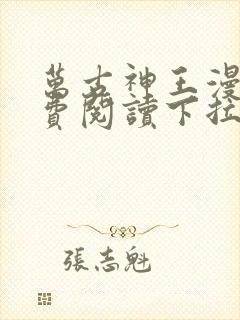 萬古神王漫
費閱讀下拉
張志魁